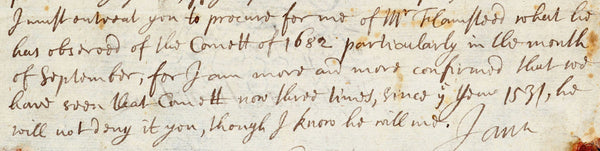 I must entreat you to procure for me of Mr Flamsteed what he
has observed of the Comett of 1682 particularly in the month
of September, for I am more and more confirmed that we
have seen that Comett now three times, since ye Yeare 1531, he
will not deny it you, though I know he will me. I am